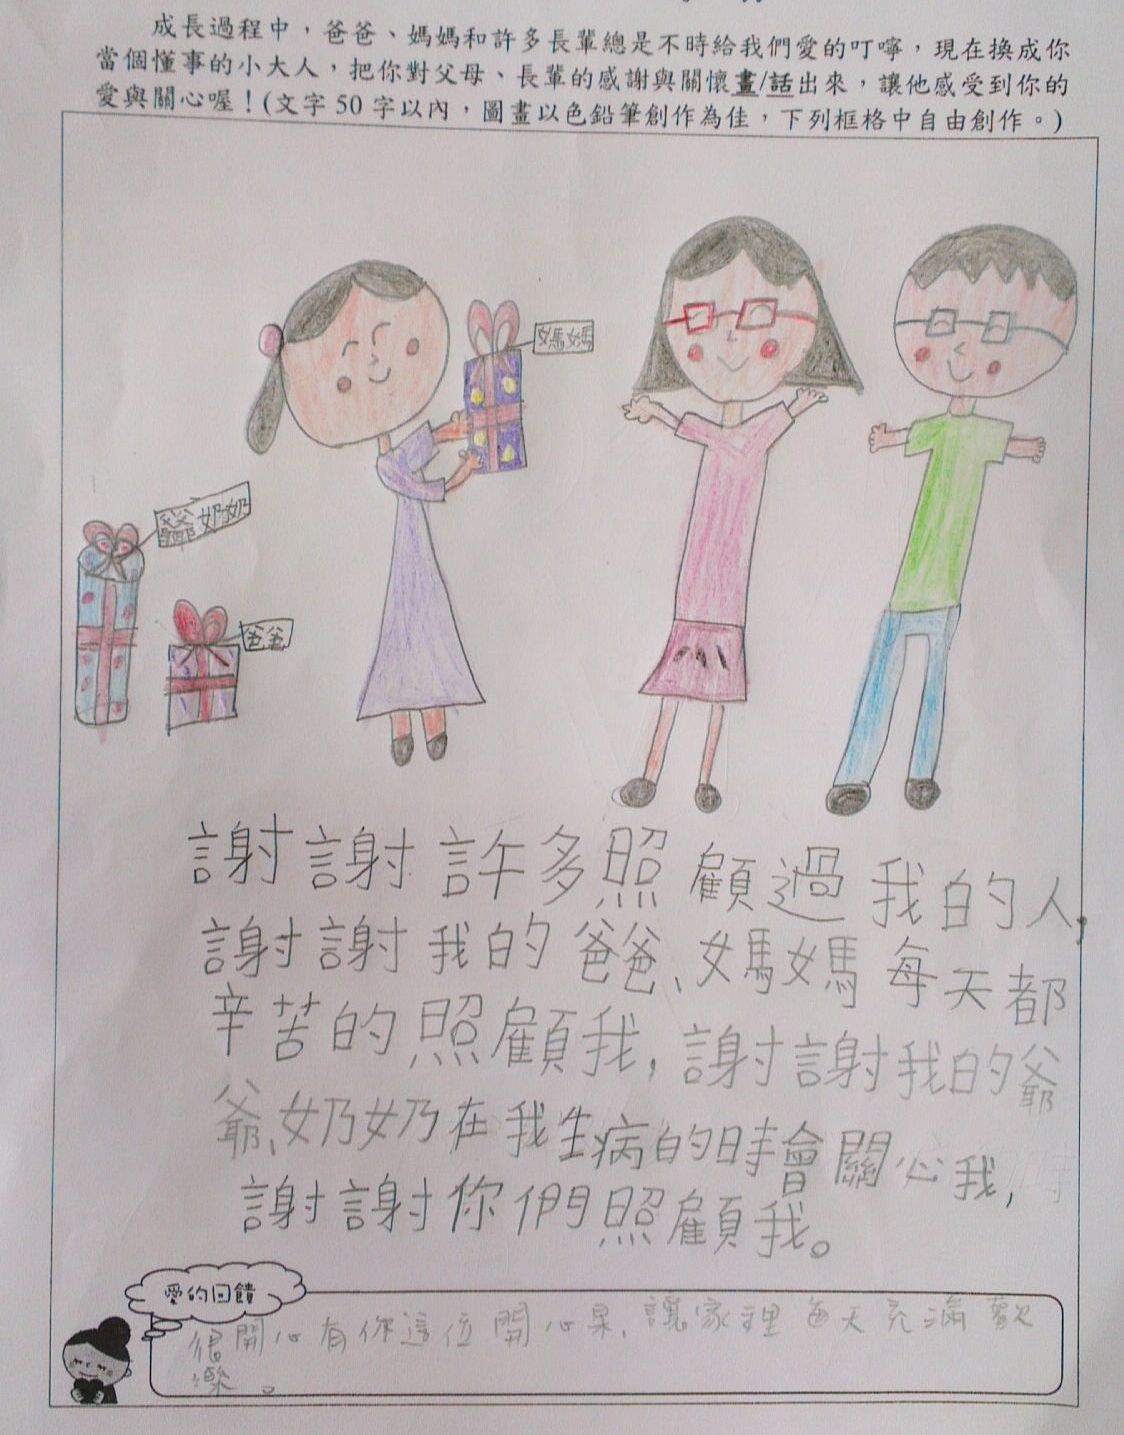 成長過程中，爸爸、媽媽和許多長輩總是不時給我們愛的叮嚀，現在換成你
當個懂事的小大人，把你對父母、長輩的感謝與關懷畫/話出來，讓他感受到你的
愛與關心喔！(文字50字以內，圖畫以色鉛筆創作為佳，下列框格中自由創作。)
媽媽
爺爺奶奶
爸爸
謝謝許多照顧過我的人，
謝謝我的爸爸、媽媽每天都
辛苦的照顧我，謝謝我的爺
爺、奶奶在我生病的時會關心我，
謝謝你們照顧我。
愛的回饋
很開心有你這位開心果，讓家裡每天充滿歡
樂。